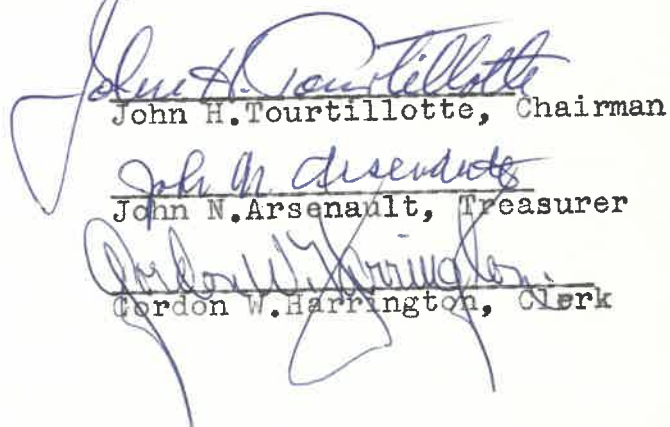 John H. Tourtillotte
John H.Tourtillotte, Chairman
John N. Arsenault
John N.Arsenault, Treasurer
Gordon W. Harrington
Gordon W.Harrington, Clerk